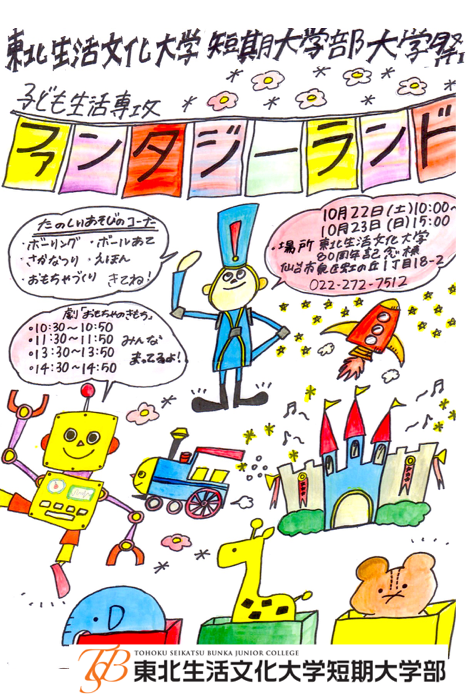 東北生活文化大学 短期大学部 大学祭
子ども生活専攻
ファンタジーランド
たのしいあそびのコーナー
・ボーリング ・ボールあて
・さかなつり ・えほん
・おもちゃづくり きてね!
10月22日(土)10:00〜
10月23日(日)15:00
・場所 東北生活文化大学
80周年記念棟
仙台市泉区虹の丘1丁目18-2
022-272-7512
劇「おもちゃのきもち」
・10:30〜10:50
・11:30〜11:50 みんな
・13:30〜13:50 まってるよ!
・14:30〜14:50
D
TSB
TOHOKU SEIKATSU BUNKA JUNIOR COLLEGE
東北生活文化大学短期大学部